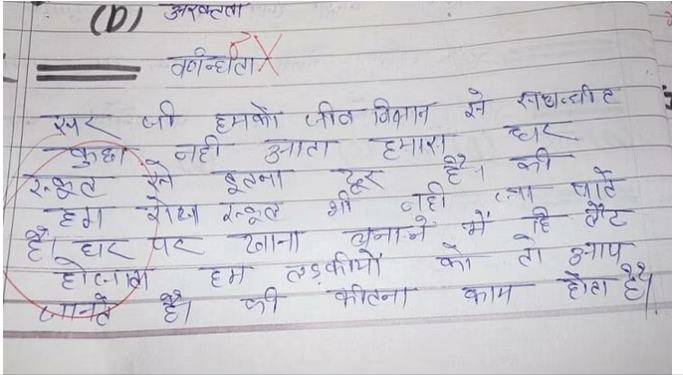 (D) अरक्तता
वर्णान्धता
सर जी हमको जीव विज्ञान से सम्बन्धीत
कुछ नही आता हमारा घर
स्कूल से इतना दूर है। की
हम रोज स्कूल भी नही जा पाते
है। घर पर खाना बनाने में हि लेट
होजाता हम लड़कीयों को तो आप
जानते है। की कीतना काम होता है।